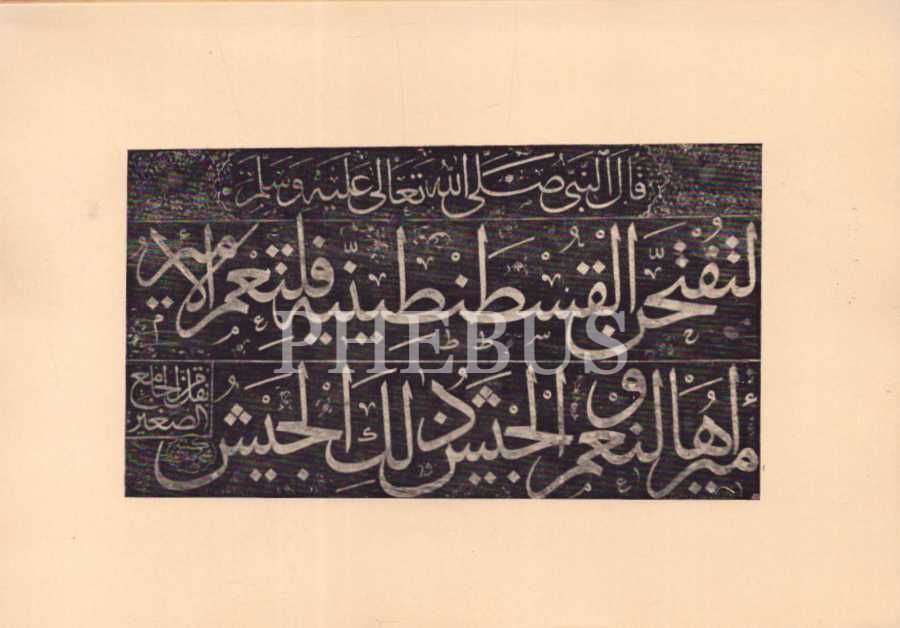 قَالَ النَّبِيُّ صَلَّى اللّٰهُ تَعَالَى عَلَيْهِ وَسَلَّمَ
لَتُفْتَحَنَّ الْقُسْطَنْطِينِيَّةُ فَلَنِعْمَ الْأَمِيرُ
أَمِيرُهَا وَلَنِعْمَ الْجَيْشُ ذٰلِكَ الْجَيْشُ
الجامع
الصغير
PHEBUS